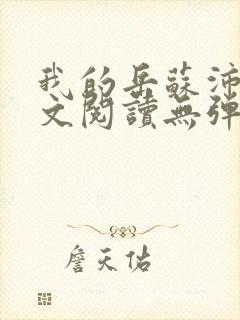 我的岳蘇沛
文閱讀無彈
詹天佑